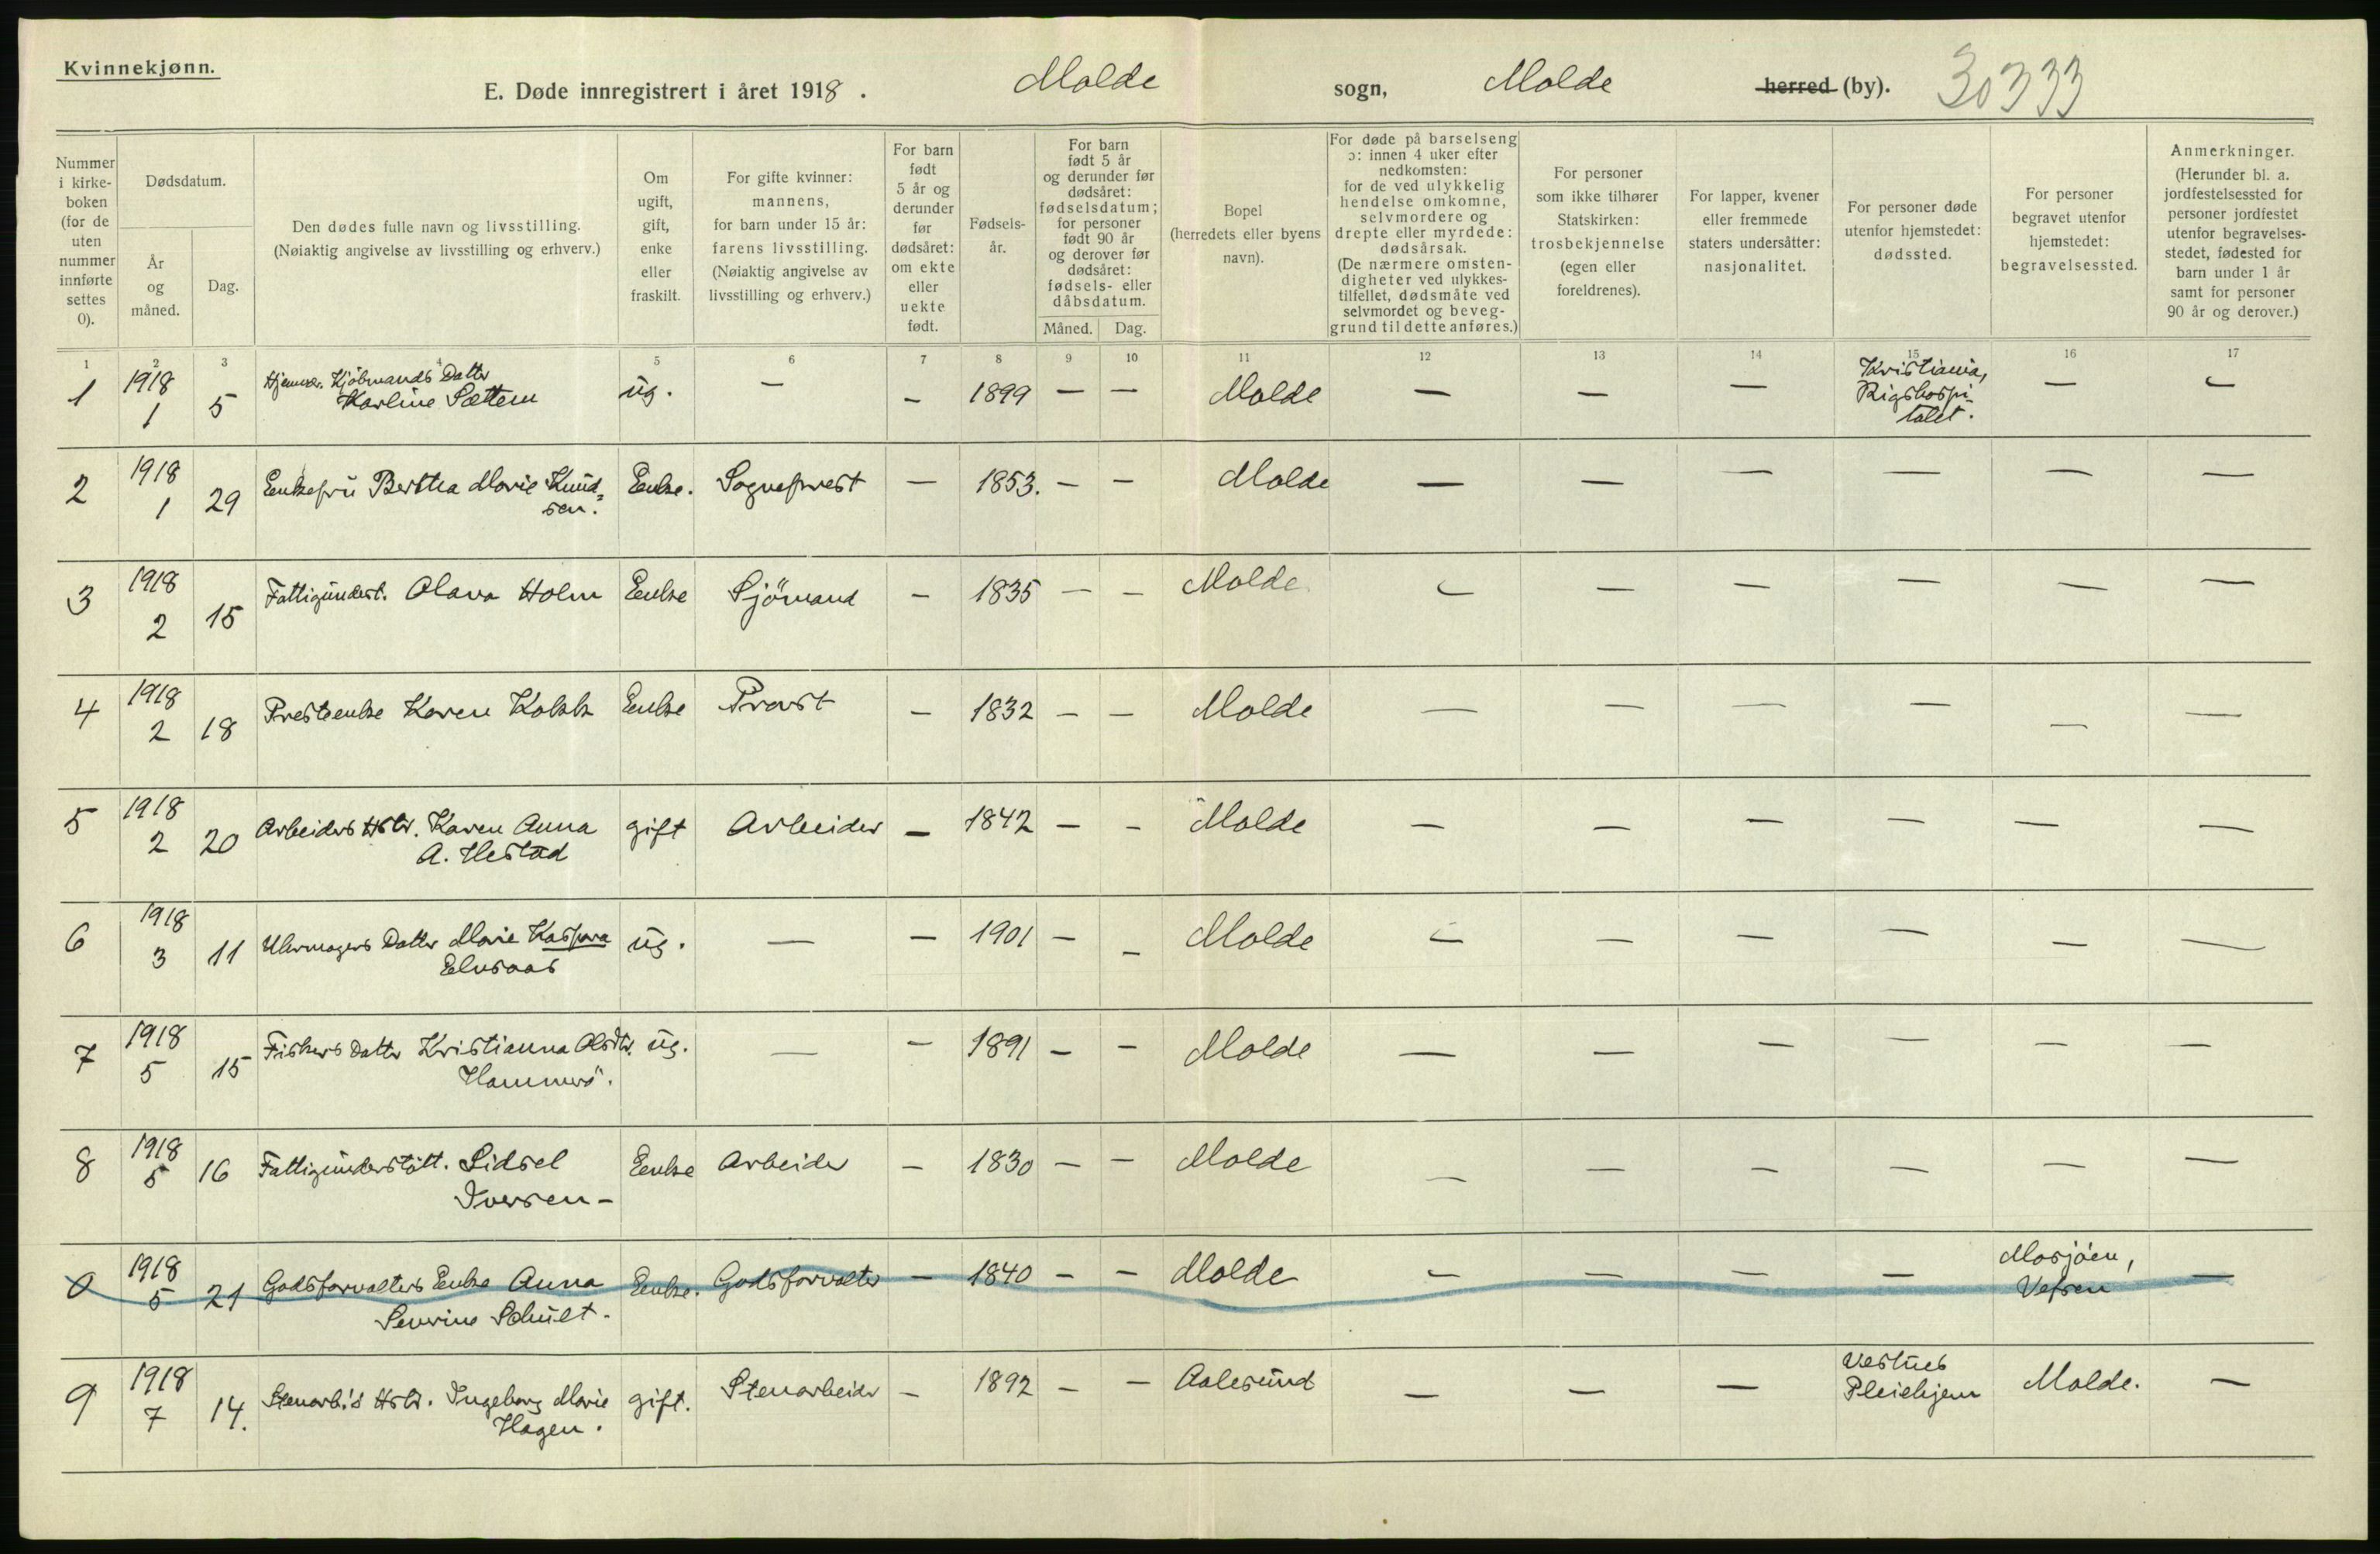 Kvinnekjønn.
E. Døde innregistrert i året 1918. Molde sogn, Molde herred (by). 30333
Nummer i kirke-boken (for de uten nummer innførte settes 0).
Dødsdatum.
År og måned.
Dag.
Den dødes fulle navn og livsstilling.
(Nøiaktig angivelse av livsstilling og erhverv.)
Om ugift, gift, enke eller fraskilt.
For gifte kvinner: mannens, for barn under 15 år: farens livsstilling. (Nøiaktig angivelse av livsstilling og erhverv.)
For barn født 5 år og derunder før dødsåret: om ekte eller uekte født.
Fødsels-år.
For barn født 5 år og derunder før dødsåret: fødselsdatum; for personer født 90 år og derover før dødsåret: fødsels- eller dåbsdatum.
Måned. Dag.
Bopel (herredets eller byens navn).
For døde på barselseng ɔ: innen 4 uker efter nedkomsten: for de ved ulykkelig hendelse omkomne, selvmordere og drepte eller myrdede: dødsårsak. (De nærmere omsten-digheter ved ulykkes-tilfellet, dødsmåte ved selvmordet og beveg-grund til dette anføres.)
For personer som ikke tilhører Statskirken: trosbekjennelse (egen eller foreldrenes).
For lapper, kvener eller fremmede staters undersåtter: nasjonalitet.
For personer døde utenfor hjemstedet: dødssted.
For personer begravet utenfor hjemstedet: begravelsessted.
Anmerkninger. (Herunder bl. a. jordfestelsessted for personer jordfestet utenfor begravelses-stedet, fødested for barn under 1 år samt for personer 90 år og derover.)
1 2 3 4 5 6 7 8 9 10 11 12 13 14 15 16 17
1 1918 1 5 Hjemmev. Kjöbmands Datter Karline Sættem ug. — – 1899 — — Molde — — — Kristiania, Rigshospi-talet. — –
2 1918 1 29 Enkefru Bertha Marie Knud=sen. Enke. Sogneprest — 1853. – – Molde — — — — — —
3 1918 2 15 Fattigunderst. Olava Holm Enke Sjömand – 1835 – – Molde – — — — — —
4 1918 2 18 Presteenke Karen Kolsk Enke Provst – 1832 – – Molde — — — — — —
5 1918 2 20 Arbeiders Hstr. Karen Anna A. Hestad gift Arbeider – 1842 – – Molde — — — — — —
6 1918 3 11 Uhrmagers Datter Marie Kaspara Elvsaas ug. — – 1901 – – Molde – — — — — —
7 1918 5 15 Fiskers Datter Kristianna Olsdtr. Hammerö. ug. — – 1891 – – Molde — — — — — —
8 1918 5 16 Fattigunderstött. Sidsel Iversen – Enke Arbeider – 1830 – – Molde — — — — — —
0 1918 5 21 Godsforvalters Enke Anna Severine Schult. Enke. Godsforvalter – 1840 – – Molde – — — — Mosjöen, Vefsen —
9 1918 7 14. Stenarb.'s Hstr. Ingeborg Marie Hagen. gift. Stenarbeider – 1892 – – Aalesund — — — Vestnes Pleiehjem Molde. —